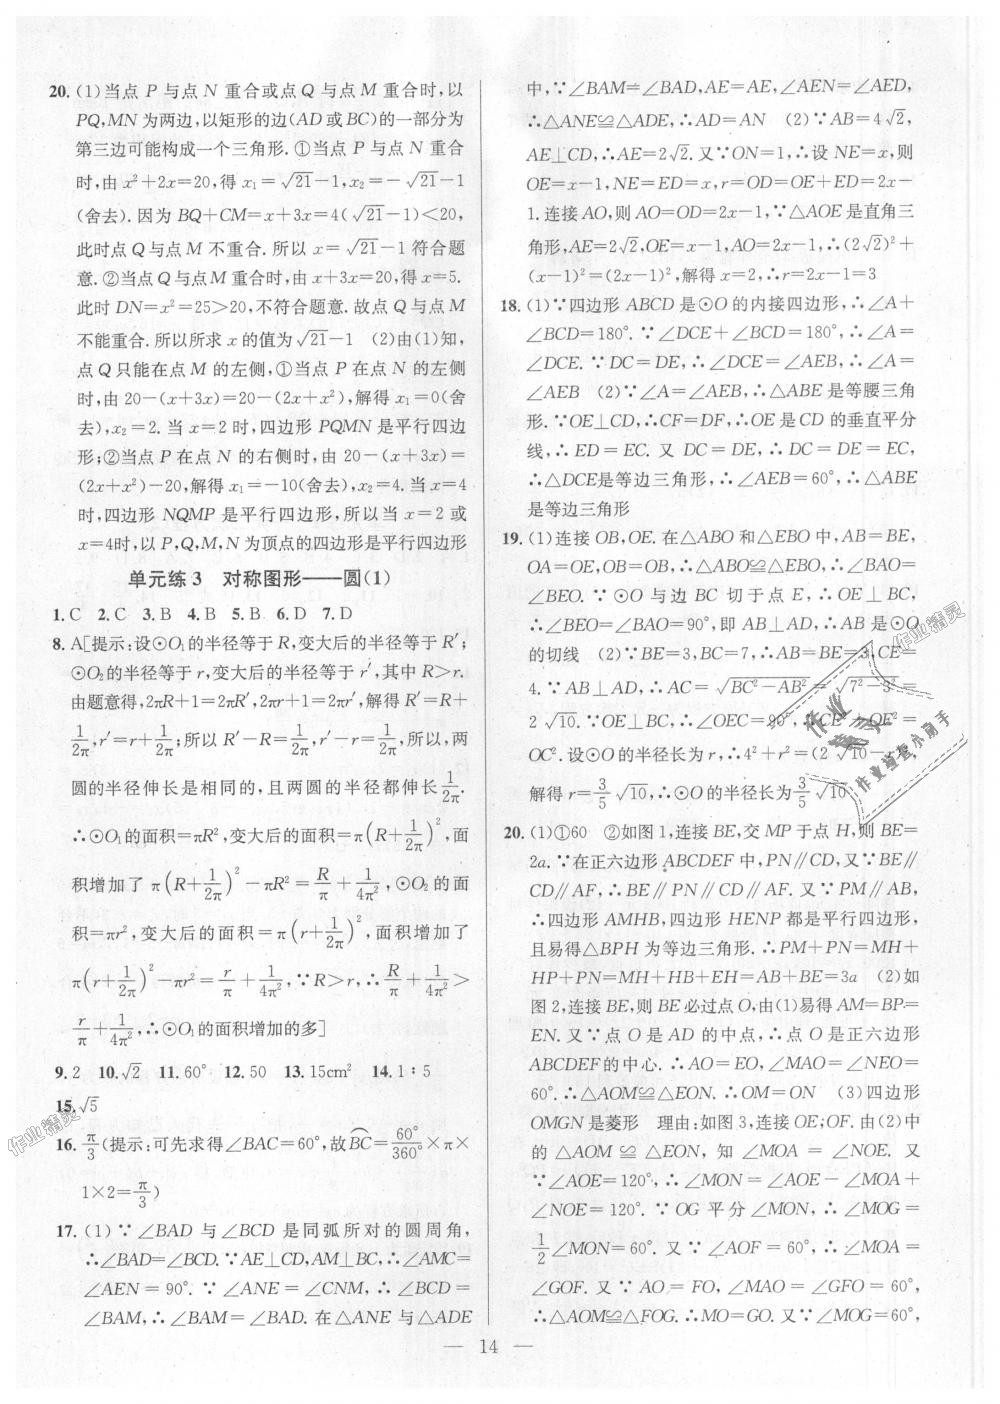 20. (1)当点 P 与点 N 重合或点 Q 与点 M 重合时,以
PQ,MN 为两边,以矩形的边(AD 或 BC)的一部分为
第三边可能构成一个三角形. ①当点 P 与点 N 重合
时,由 x²+2x=20,得 x₁=√21-1,x₂=-√21-1
(舍去). 因为 BQ+CM=x+3x=4(√21-1)<20,
此时点 Q 与点 M 不重合. 所以 x=√21-1 符合题
意. ②当点 Q 与点 M 重合时,由 x+3x=20,得 x=5.
此时 DN=x²=25>20,不符合题意. 故点 Q 与点 M
不能重合. 所以所求 x 的值为√21-1 (2)由(1)知,
点 Q 只能在点 M 的左侧,①当点 P 在点 N 的左侧
时,由 20-(x+3x)=20-(2x+x²),解得 x₁=0(舍
去),x₂=2. 当 x=2 时,四边形 PQMN 是平行四边
形;②当点 P 在点 N 的右侧时,由 20-(x+3x)=
(2x+x²)-20,解得 x₁=-10(舍去),x₂=4. 当 x=4
时,四边形 NQMP 是平行四边形,所以当 x=2 或
x=4时,以 P,Q,M,N 为顶点的四边形是平行四边形
单元练 3 对称图形——圆(1)
1. C 2. C 3. B 4. B 5. B 6. D 7. D
8. A[提示:设⊙O₁的半径等于 R,变大后的半径等于 R′;
⊙O₂的半径等于 r,变大后的半径等于 r′,其中 R>r.
由题意得,2πR+1=2πR′,2πr+1=2πr′,解得 R′=R+
1/2π,r′=r+1/2π;所以 R′-R=1/2π,r′-r=1/2π,所以,两
圆的半径伸长是相同的,且两圆的半径都伸长1/2π.
∴⊙O₁的面积=πR²,变大后的面积=π(R+1/2π)²,面
积增加了 π(R+1/2π)²-πR²=R/π+1/4π²,⊙O₂的面
积=πr²,变大后的面积=π(r+1/2π)²,面积增加了
π(r+1/2π)²-πr²=r/π+1/4π²,∵R>r,∴R/π+1/4π²>
r/π+1/4π²,∴⊙O₁的面积增加的多]
9. 2 10. √2 11. 60° 12. 50 13. 15cm² 14. 1∶5
15. √5
16. π/3(提示:可先求得∠BAC=60°,故B͡C=60°/360°×π×
1×2=π/3)
17. (1) ∵ ∠BAD 与∠BCD 是同弧所对的圆周角,
∴∠BAD=∠BCD. ∵AE⊥CD,AM⊥BC,∴∠AMC=
∠AEN = 90°. ∵ ∠ANE = ∠CNM,∴ ∠BCD =
∠BAM,∴∠BAM= ∠BAD. 在△ANE 与△ADE
中,∵∠BAM=∠BAD,AE=AE,∠AEN=∠AED,
∴△ANE≌△ADE,∴AD=AN (2)∵AB=4√2,
AE⊥CD,∴AE=2√2. 又∵ON=1,∴设 NE=x,则
OE=x-1,NE=ED=x,r=OD=OE+ED=2x-
1. 连接 AO,则 AO=OD=2x-1,∵△AOE 是直角三
角形,AE=2√2,OE=x-1,AO=2x-1,∴(2√2)²+
(x-1)²=(2x-1)²,解得 x=2,∴r=2x-1=3
18. (1)∵四边形 ABCD 是⊙O 的内接四边形,∴∠A+
∠BCD=180°. ∵∠DCE+∠BCD=180°,∴∠A=
∠DCE. ∵DC=DE,∴∠DCE=∠AEB,∴∠A=
∠AEB (2)∵∠A=∠AEB,∴△ABE 是等腰三角
形. ∵OE⊥CD,∴CF=DF,∴OE 是 CD 的垂直平分
线,∴ED=EC. 又 DC=DE,∴DC=DE=EC,
∴△DCE是等边三角形,∴∠AEB=60°,∴△ABE
是等边三角形
19. (1)连接 OB,OE. 在△ABO 和△EBO 中,AB=BE,
OA=OE,OB=OB,∴△ABO≌△EBO,∴∠BAO=
∠BEO. ∵⊙O 与边 BC 切于点 E,∴OE⊥BC,
∴∠BEO=∠BAO=90°,即 AB⊥AD,∴AB 是⊙O
的切线 (2)∵BE=3,BC=7,∴AB=BE=3,CE=
4. ∵AB⊥AD,∴AC=√BC²-AB²=√7²-3²=
2√10. ∵OE⊥BC,∴∠OEC=90°,∴CE²+OE²=
OC². 设⊙O 的半径长为 r,∴4²+r²=(2√10-r)²,
解得 r=3/5√10,∴⊙O 的半径长为3/5√10
20. (1)①60 ②如图 1,连接 BE,交 MP 于点 H,则 BE=
2a. ∵在正六边形 ABCDEF 中,PN∥CD,又∵BE∥
CD∥AF,∴BE∥PN∥CD∥AF. 又∵PM∥AB,
∴四边形 AMHB,四边形 HENP 都是平行四边形,
且易得△BPH 为等边三角形. ∴PM+PN=MH+
HP+PN=MH+HB+EH=AB+BE=3a (2)如
图 2,连接 BE,则 BE 必过点 O,由(1)易得 AM=BP=
EN. 又∵点 O 是 AD 的中点,∴点 O 是正六边形
ABCDEF的中心. ∴AO=EO,∠MAO=∠NEO=
60°. ∴△AOM≌△EON. ∴OM=ON (3)四边形
OMGN 是菱形 理由:如图 3,连接 OE;OF. 由(2)
的 △AOM ≌ △EON,知 ∠MOA = ∠NOE. 又
∵∠AOE=120°,∴∠MON=∠AOE-∠MOA+
∠NOE=120°. ∵OG 平分∠MON,∴∠MOG=
1/2∠MON=60°. 又∵∠AOF=60°,∴∠MOA=
∠GOF. 又∵AO=FO,∠MAO=∠GFO=60°,
∴△AOM≌△FOG. ∴MO=GO. 又∵∠MOG=60°,
— 14 —
作业精灵
作业精灵
作业检查小助手
作业精灵